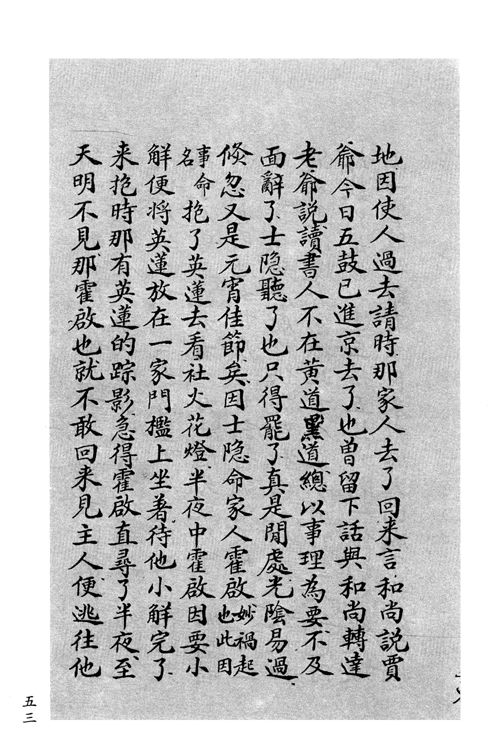 地因使人過去請時那家人去了回来言和尚說賈
爺今日五鼓已進京去了也曽留下話與和尚轉達
老爺說讀書人不在黄道黑道總以事理為要不及
面辭了士隐聽了也只得罷了真是閒處光陰易過
倐忽又是元宵佳節矣因士隐命家人霍啟妙禍起也此因
事命名抱了英蓮去看社火花燈半夜中霍啟因要小
解便将英蓮放在一家門檻上坐著待他小解完了
来抱時那有英蓮的踪影急得霍啟直尋了半夜至
天明不見那霍啟也就不敢回来見主人便逃往他
五三